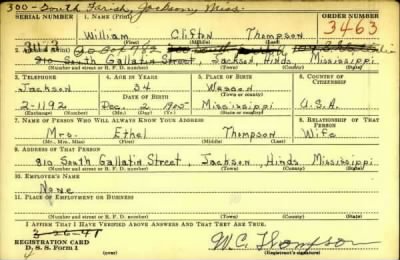 300 - South Farish, Jackson, Miss.
REGISTRATION CARD
SERIAL NUMBER 1. NAME (Print) ORDER NUMBER
William Clifton Thompson 3463
(First) (Middle) (Last)
2. ADDRESS (Print)
810 South Gallatin Street, Jackson, Hinds Mississippi
(Number and street or R. F. D. number) (Town) (County) (State)
3. TELEPHONE 4. AGE IN YEARS 5. PLACE OF BIRTH 6. COUNTRY OF CITIZENSHIP
Jackson 34 Wesson
DATE OF BIRTH (Town or county)
2-1192 Dec. 2 1905 Mississippi U.S.A.
(Exchange) (Number) (Mo.) (Day) (Yr.) (State or country)
7. NAME OF PERSON WHO WILL ALWAYS KNOW YOUR ADDRESS 8. RELATIONSHIP OF THAT PERSON
Mrs. Ethel Thompson Wife
(Mr., Mrs., Miss) (First) (Middle) (Last)
9. ADDRESS OF THAT PERSON
810 South Gallatin Street, Jackson, Hinds Mississippi
(Number and street or R. F. D. number) (Town) (County) (State)
10. EMPLOYER'S NAME
None
11. PLACE OF EMPLOYMENT OR BUSINESS
(Number and street or R. F. D. number) (Town) (County) (State)
I AFFIRM THAT I HAVE VERIFIED ABOVE ANSWERS AND THAT THEY ARE TRUE.
3-26-41
REGISTRATION CARD
D. S. S. Form 1
W.C. Thompson
(Registrant's signature)